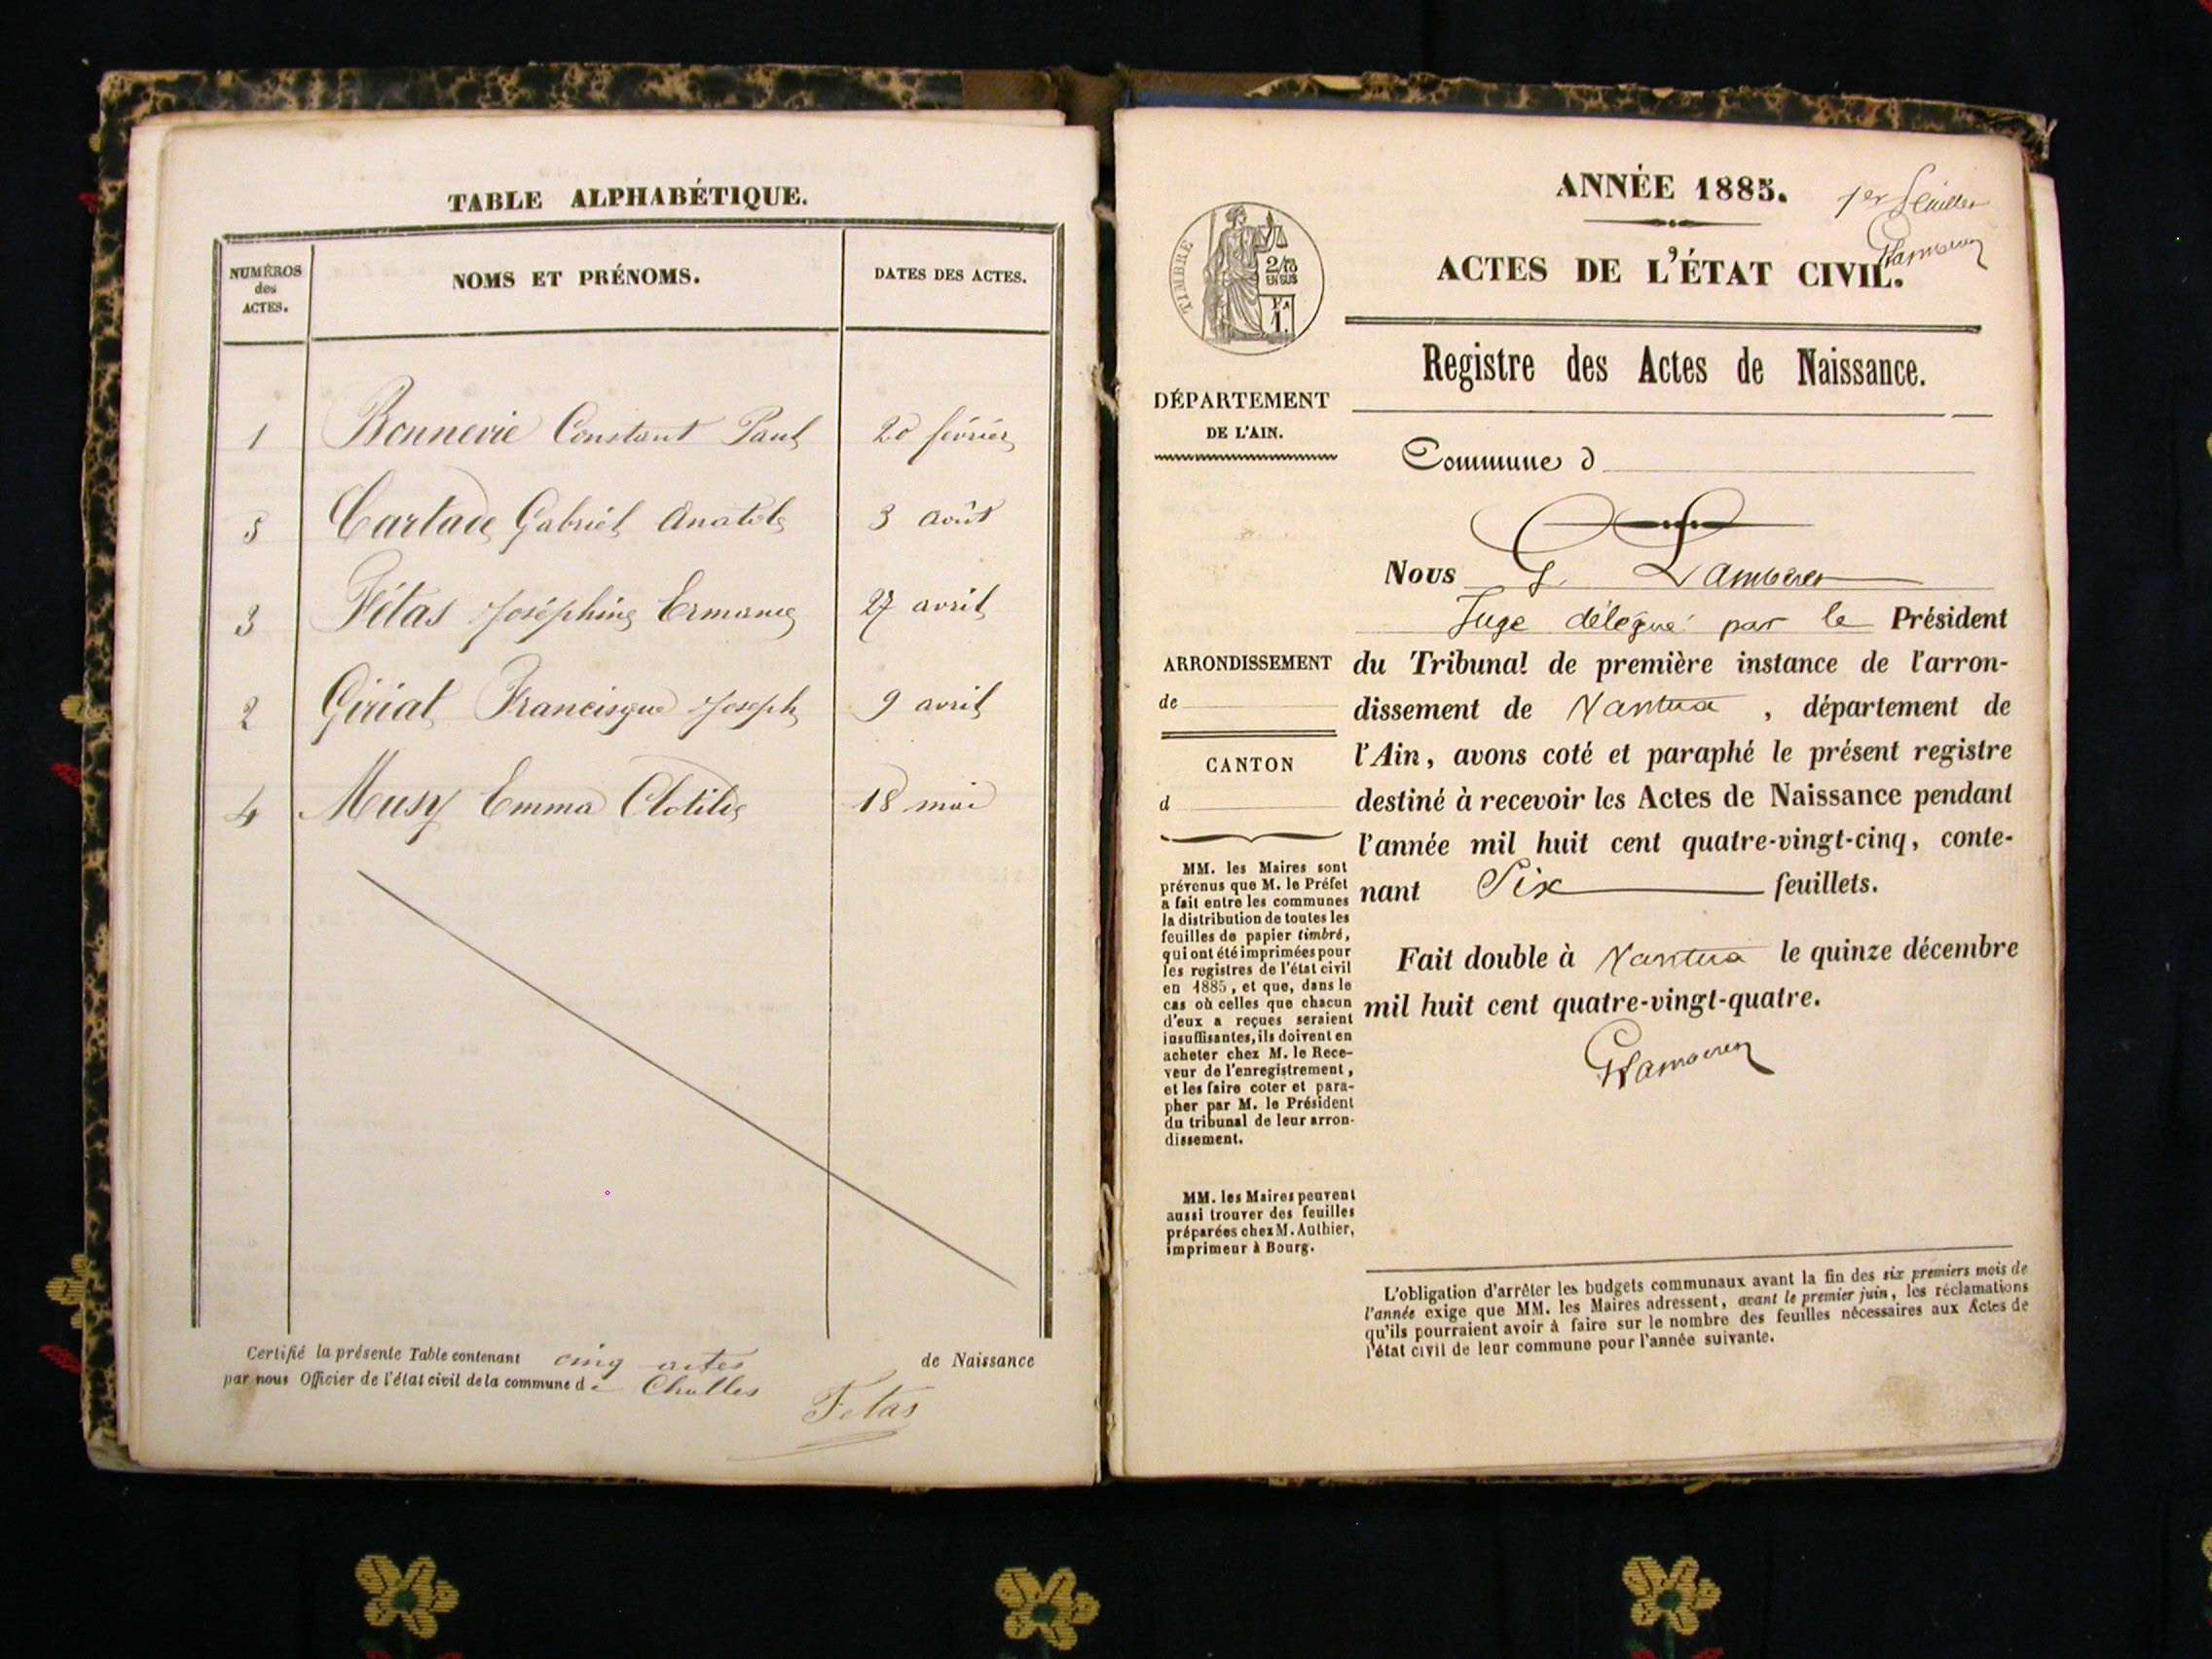 TABLE ALPHABÉTIQUE.
NUMÉROS des ACTES.
NOMS ET PRÉNOMS.
DATES DES ACTES.
1 Bonnevie Constant Paul 20 février
5 Gabriel Anatole 3 août
3 Fétas Joséphine Ermance 27 avril
2 Giriat Francisque Joseph 9 avril
4 Musy Emma Clotilde 18 mai
Certifié la présente Table contenant cinq actes de Naissance
par nous Officier de l'état civil de la commune de Challes
Fetas
ANNÉE 1885.
1er feuillet
ACTES DE L'ÉTAT CIVIL.
TIMBRE
2/10
EN SUS
1.
Registre des Actes de Naissance.
DÉPARTEMENT
DE L'AIN.
Commune d
Nous G. 
Juge délégué par le Président
ARRONDISSEMENT
de
CANTON
d
du Tribunal de première instance de l'arron-
dissement de Nantua, département de
l'Ain, avons coté et paraphé le présent registre
destiné à recevoir les Actes de Naissance pendant
l'année mil huit cent quatre-vingt-cinq, conte-
nant Six feuillets.
Fait double à Nantua le quinze décembre
mil huit cent quatre-vingt-quatre.
MM. les Maires sont
prévenus que M. le Préfet
a fait entre les communes
la distribution de toutes les
feuilles de papier timbré,
qui ont été imprimées pour
les registres de l'état civil
en 1885, et que, dans le
cas où celles que chacun
d'eux a reçues seraient
insuffisantes, ils doivent en
acheter chez M. le Rece-
veur de l'enregistrement,
et les faire coter et para-
pher par M. le Président
du tribunal de leur arron-
dissement.
MM. les Maires peuvent
aussi trouver des feuilles
préparées chez M. Authier,
imprimeur à Bourg.
L'obligation d'arrêter les budgets communaux avant la fin des six premiers mois de
l'année exige que MM. les Maires adressent, avant le premier juin, les réclamations
qu'ils pourraient avoir à faire sur le nombre des feuilles nécessaires aux Actes de
l'état civil de leur commune pour l'année suivante.